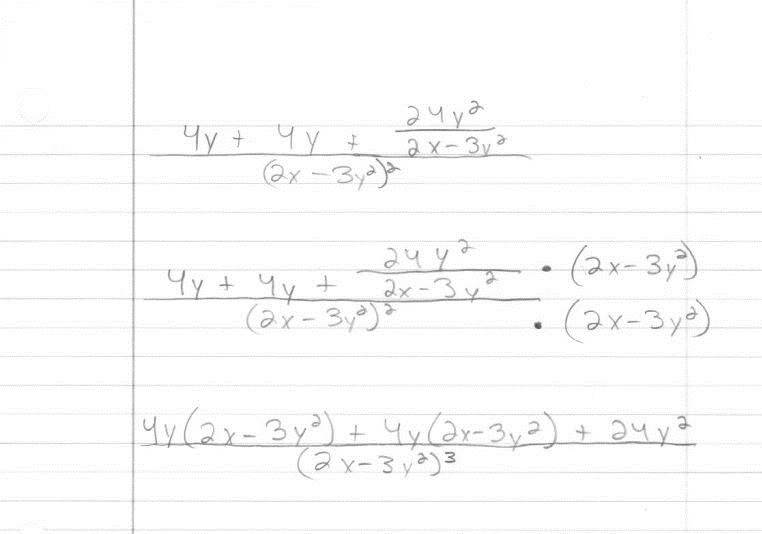 24y²
4y + 4y + 2x-3y²
(2x-3y²)²
24y² • (2x-3y²)
4y + 4y + 2x-3y²
(2x-3y²)² • (2x-3y²)
4y(2x-3y²) + 4y(2x-3y²) + 24y²
(2x-3y²)³